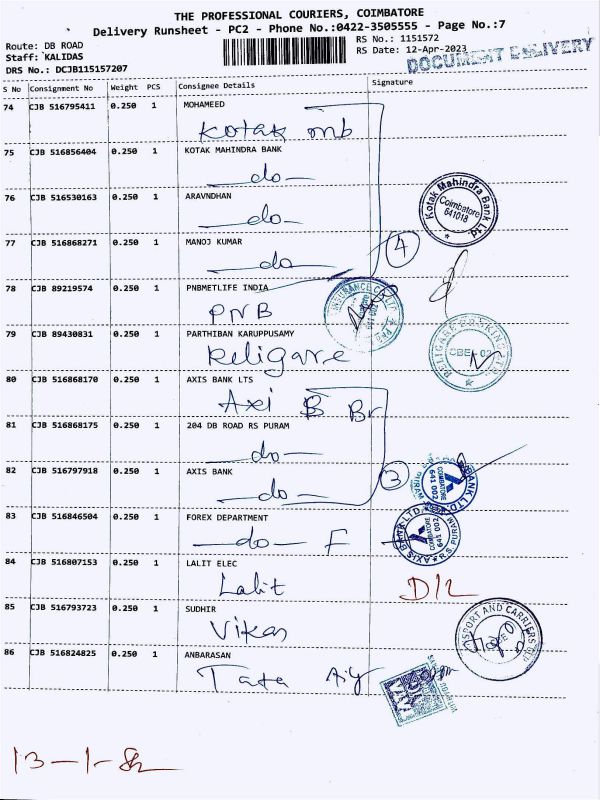 THE PROFESSIONAL COURIERS, COIMBATORE
Delivery Runsheet - PC2 - Phone No.:0422-3505555 - Page No.:7
Route: DB ROAD
RS No.: 1151572
Staff: KALIDAS
RS Date: 12-Apr-2023
DOCUMENT DELIVERY
DRS No.: DCJB115157207
S No Consignment No Weight PCS Consignee Details Signature
74 CJB 516795411 0.250 1 MOHAMEED
Kotak mb
75 CJB 516856404 0.250 1 KOTAK MAHINDRA BANK
—do—
76 CJB 516530163 0.250 1 ARAVNDHAN
—do—
Kotak Mahindra Bank Ltd
Coimbatore
641018
77 CJB 516868271 0.250 1 MANOJ KUMAR
—do—
4
78 CJB 89219574 0.250 1 PNBMETLIFE INDIA
PNB
INSURANCE CO LTD
79 CJB 89430831 0.250 1 PARTHIBAN KARUPPUSAMY
Religare
RELIGARE BROKING LTD.
CBE-02
80 CJB 516868170 0.250 1 AXIS BANK LTS
Axi B Br
81 CJB 516868175 0.250 1 204 DB ROAD RS PURAM
—do—
82 CJB 516797918 0.250 1 AXIS BANK
—do—
3
BANK LTD.
COIMBATORE
641 002
83 CJB 516846504 0.250 1 FOREX DEPARTMENT
—do— F
AXIS BANK LTD.
R.S. PURAM
COIMBATORE
641 002
84 CJB 516807153 0.250 1 LALIT ELEC
Lalit
D/L
85 CJB 516793723 0.250 1 SUDHIR
Vikas
SPORT AND CARRIERS
86 CJB 516824825 0.250 1 ANBARASAN
Tata Aig
13-1-82